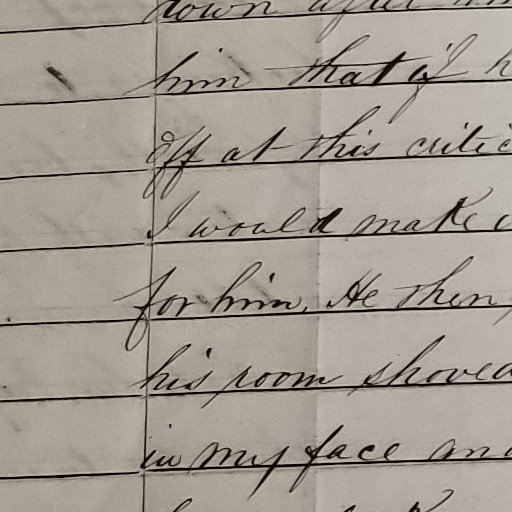 down after
him that if h
off at this critic
I would make
for him. He then
his room shoved
in my face and